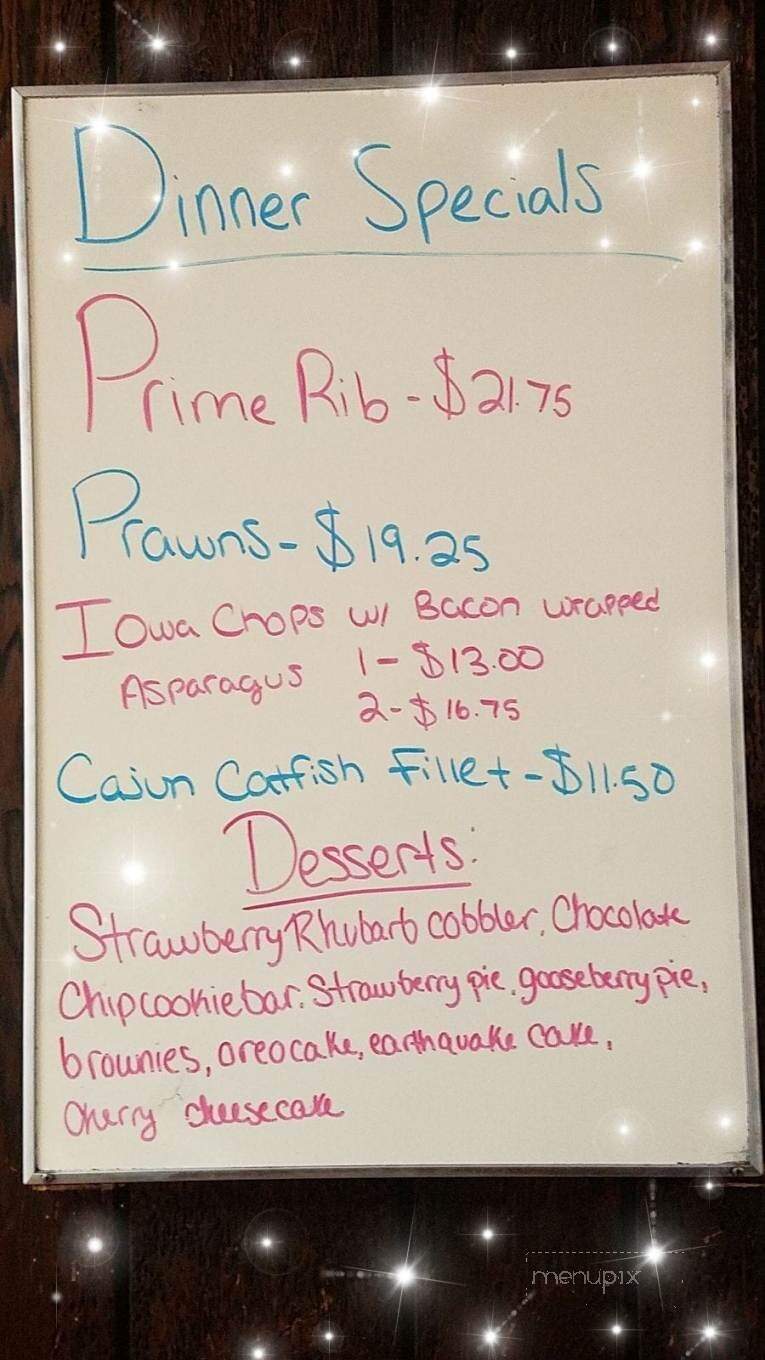 Dinner Specials
Prime Rib - $21.75
Prawns - $19.25
Iowa Chops w/ Bacon wrapped
Asparagus 1 - $13.00
2 - $16.75
Cajun Catfish Fillet - $11.50
Desserts:
Strawberry Rhubarb cobbler, Chocolate
Chip cookie bar, Strawberry pie, gooseberry pie,
brownies, oreo cake, earthquake cake,
Cherry cheesecake
menupix